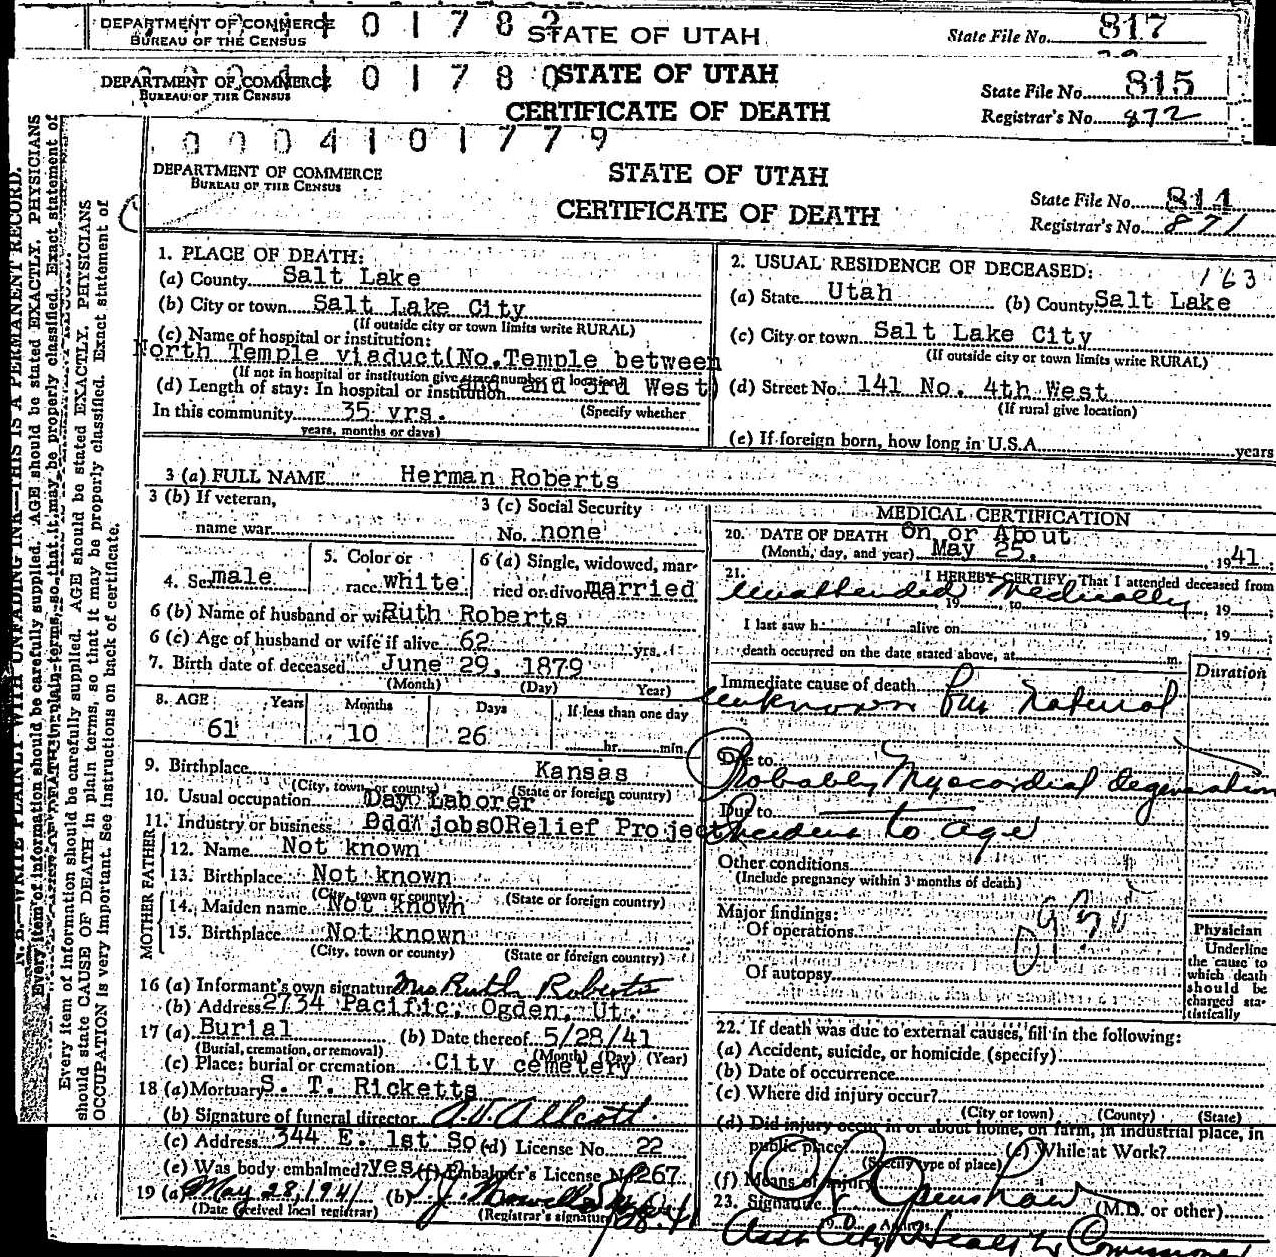 DEPARTMENT OF COMMERCE
BUREAU OF THE CENSUS
0 1 7 8 2
STATE OF UTAH
State File No. 817
DEPARTMENT OF COMMERCE
BUREAU OF THE CENSUS
0 1 7 8 0
STATE OF UTAH
CERTIFICATE OF DEATH
State File No. 815
Registrar's No. 872
0 0 0 4 1 0 1 7 7 9
DEPARTMENT OF COMMERCE
BUREAU OF THE CENSUS
STATE OF UTAH
CERTIFICATE OF DEATH
State File No. 814
Registrar's No. 871
N. B.—WRITE PLAINLY WITH UNFADING INK—THIS IS A PERMANENT RECORD.
Every item of information should be carefully supplied. AGE should be stated EXACTLY. PHYSICIANS
Every item of information should be carefully supplied. AGE should be stated EXACTLY. PHYSICIANS
should state CAUSE OF DEATH in plain terms, so that it may be properly classified. Exact statement of
OCCUPATION is very important. See instructions on back of certificate.
1. PLACE OF DEATH:
(a) County Salt Lake
(b) City or town Salt Lake City
(If outside city or town limits write RURAL)
(c) Name of hospital or institution:
North Temple viaduct(No.Temple between
(If not in hospital or institution give street number or location)
and 3rd West)
(d) Length of stay: In hospital or institution
In this community 35 yrs. (Specify whether
years, months or days)
2. USUAL RESIDENCE OF DECEASED: 163
(a) State Utah (b) County Salt Lake
(c) City or town Salt Lake City
(If outside city or town limits write RURAL)
(d) Street No. 141 No. 4th West
(If rural give location)
(e) If foreign born, how long in U.S.A. years
3 (a) FULL NAME Herman Roberts
3 (b) If veteran,
name war
3 (c) Social Security
No. none
4. Sex male
5. Color or
race white
6 (a) Single, widowed, mar-
ried or divorced married
6 (b) Name of husband or wife Ruth Roberts
6 (c) Age of husband or wife if alive 62 yrs.
7. Birth date of deceased June 29, 1879
(Month) (Day) Year)
8. AGE Years Months Days If less than one day
61 10 26 hr. min.
9. Birthplace Kansas
(City, town or county) (State or foreign country)
10. Usual occupation Day Laborer
11. Industry or business Odd jobs Relief Project
FATHER
12. Name Not known
13. Birthplace Not known
(City, town or county) (State or foreign country)
MOTHER
14. Maiden name Not known
15. Birthplace Not known
(City, town or county) (State or foreign country)
16 (a) Informant's own signature Mrs Ruth Roberts
(b) Address 2734 Pacific, Ogden, Ut.
17 (a) Burial (b) Date thereof 5/28/41
(Burial, cremation, or removal) (Month) (Day) (Year)
(c) Place: burial or cremation City cemetery
18 (a) Mortuary S. T. Ricketts
(b) Signature of funeral director
(c) Address 344 E. 1st So (d) License No. 22
(e) Was body embalmed? yes (f) Embalmer's License No 267
19 (a) May 28, 1941 (b)
(Date received local registrar) (Registrar's signature)
MEDICAL CERTIFICATION
20. DATE OF DEATH On or About
(Month, day, and year) May 25, 1941.
21. I HEREBY CERTIFY, That I attended deceased from
unattended medically 19 to 19
I last saw h alive on 19
death occurred on the date stated above, at m.
Duration
Immediate cause of death
unknown but natural
Due to
Probably Myocardial degeneration
Due to
Incident to age
Other conditions
(Include pregnancy within 3 months of death)
Major findings:
Of operations
Of autopsy
Physician
Underline
the cause to
which death
should be
charged sta-
tistically
22. If death was due to external causes, fill in the following:
(a) Accident, suicide, or homicide (specify)
(b) Date of occurrence
(c) Where did injury occur?
(City or town) (County) (State)
(d) Did injury occur in or about home, on farm, in industrial place, in
public place? (e) While at Work?
(Specify type of place)
(f) Means of injury
23. Signature (M.D. or other)
Asst City Health Commissioner